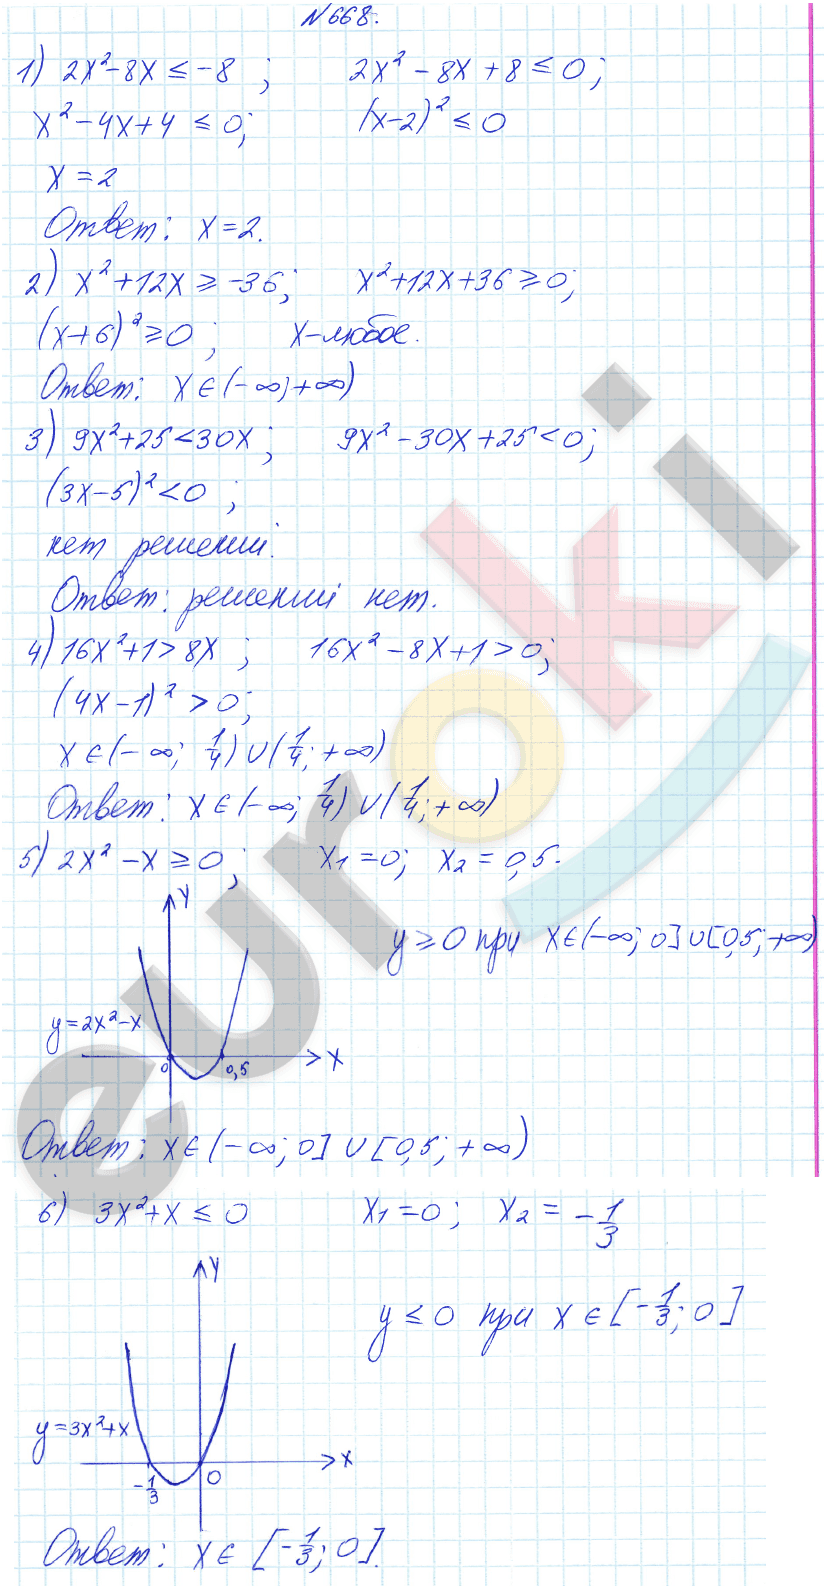 №668.
1) 2x²-8x ≤ -8 ; 2x² - 8x + 8 ≤ 0;
x² - 4x + 4 ≤ 0; (x-2)² ≤ 0
x = 2
Ответ: x = 2.
2) x² + 12x ≥ -36; x² + 12x + 36 ≥ 0;
(x+6)² ≥ 0 ; x - любое.
Ответ: x ∈ (-∞; +∞)
3) 9x² + 25 < 30x ; 9x² - 30x + 25 < 0;
(3x-5)² < 0 ;
нет решений.
Ответ: решений нет.
4) 16x² + 1 > 8x ; 16x² - 8x + 1 > 0;
(4x-1)² > 0;
x ∈ (-∞; 1/4) ∪ (1/4; +∞)
Ответ: x ∈ (-∞; 1/4) ∪ (1/4; +∞)
5) 2x² - x ≥ 0 ; x₁ = 0; x₂ = 0,5.
y
y ≥ 0 при x ∈ (-∞; 0] ∪ [0,5; +∞)
y = 2x² - x
0 0,5 x
Ответ: x ∈ (-∞; 0] ∪ [0,5; +∞)
6) 3x² + x ≤ 0 x₁ = 0; x₂ = -1/3
y
y ≤ 0 при x ∈ [-1/3; 0]
y = 3x² + x
x
-1/3 0
Ответ: x ∈ [-1/3; 0].
euroki